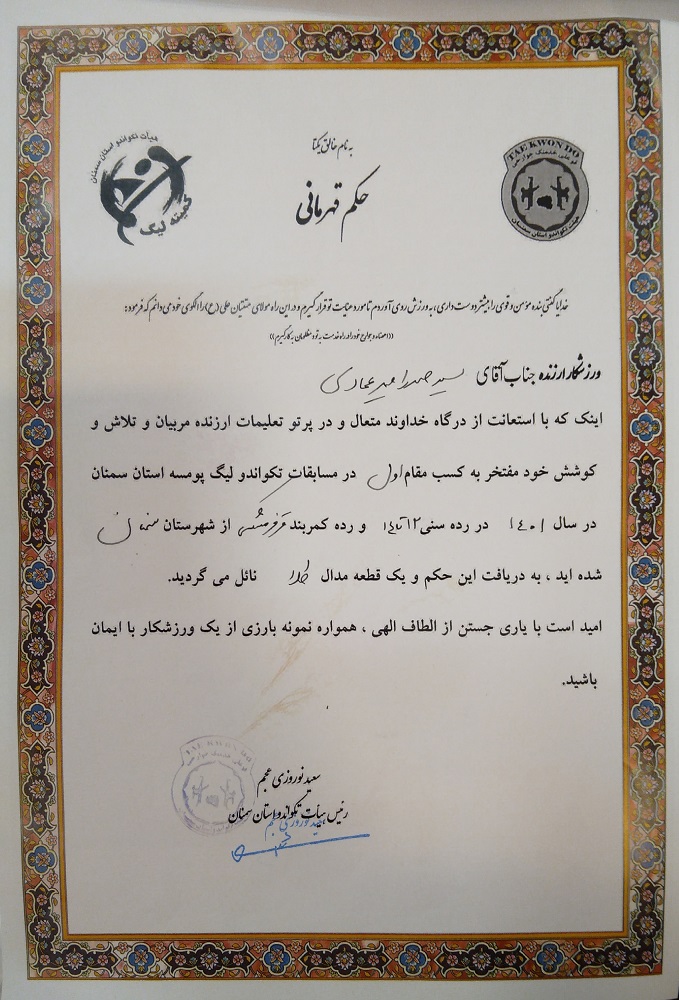 به نام خالق یکتا
حکم قهرمانی
هیأت تکواندو استان سمنان
کمیته لیگ
TAE KWON DO
قو علی خدمتک جوارحی
هیات تکواندو استان سمنان
خدایا گفتی بنده مؤمن و قوی را بیشتر دوست داری، به ورزش روی آوردم تا مورد عنایت تو قرار گیرم و در این راه مولای متقیان علی (ع) را الگوی خود می دانم که فرمود:
ورزشکار ارزنده جناب آقای سید
اینک که با استعانت از درگاه خداوند متعال و در پرتو تعلیمات ارزنده مربیان و تلاش و
کوشش خود مفتخر به کسب مقام اول در مسابقات تکواندو لیگ پومسه استان سمنان
در سال ۱۴۰۱ در رده سنی ۱۲ تا ۱۴ و رده کمربند از شهرستان سمنان
شده اید ، به دریافت این حکم و یک قطعه مدال طلا نائل می گردید.
امید است با یاری جستن از الطاف الهی ، همواره نمونه بارزی از یک ورزشکار با ایمان
باشید.
TAE KWON DO
سعید نوروزی عجم
رئیس هیأت تکواندو استان سمنان